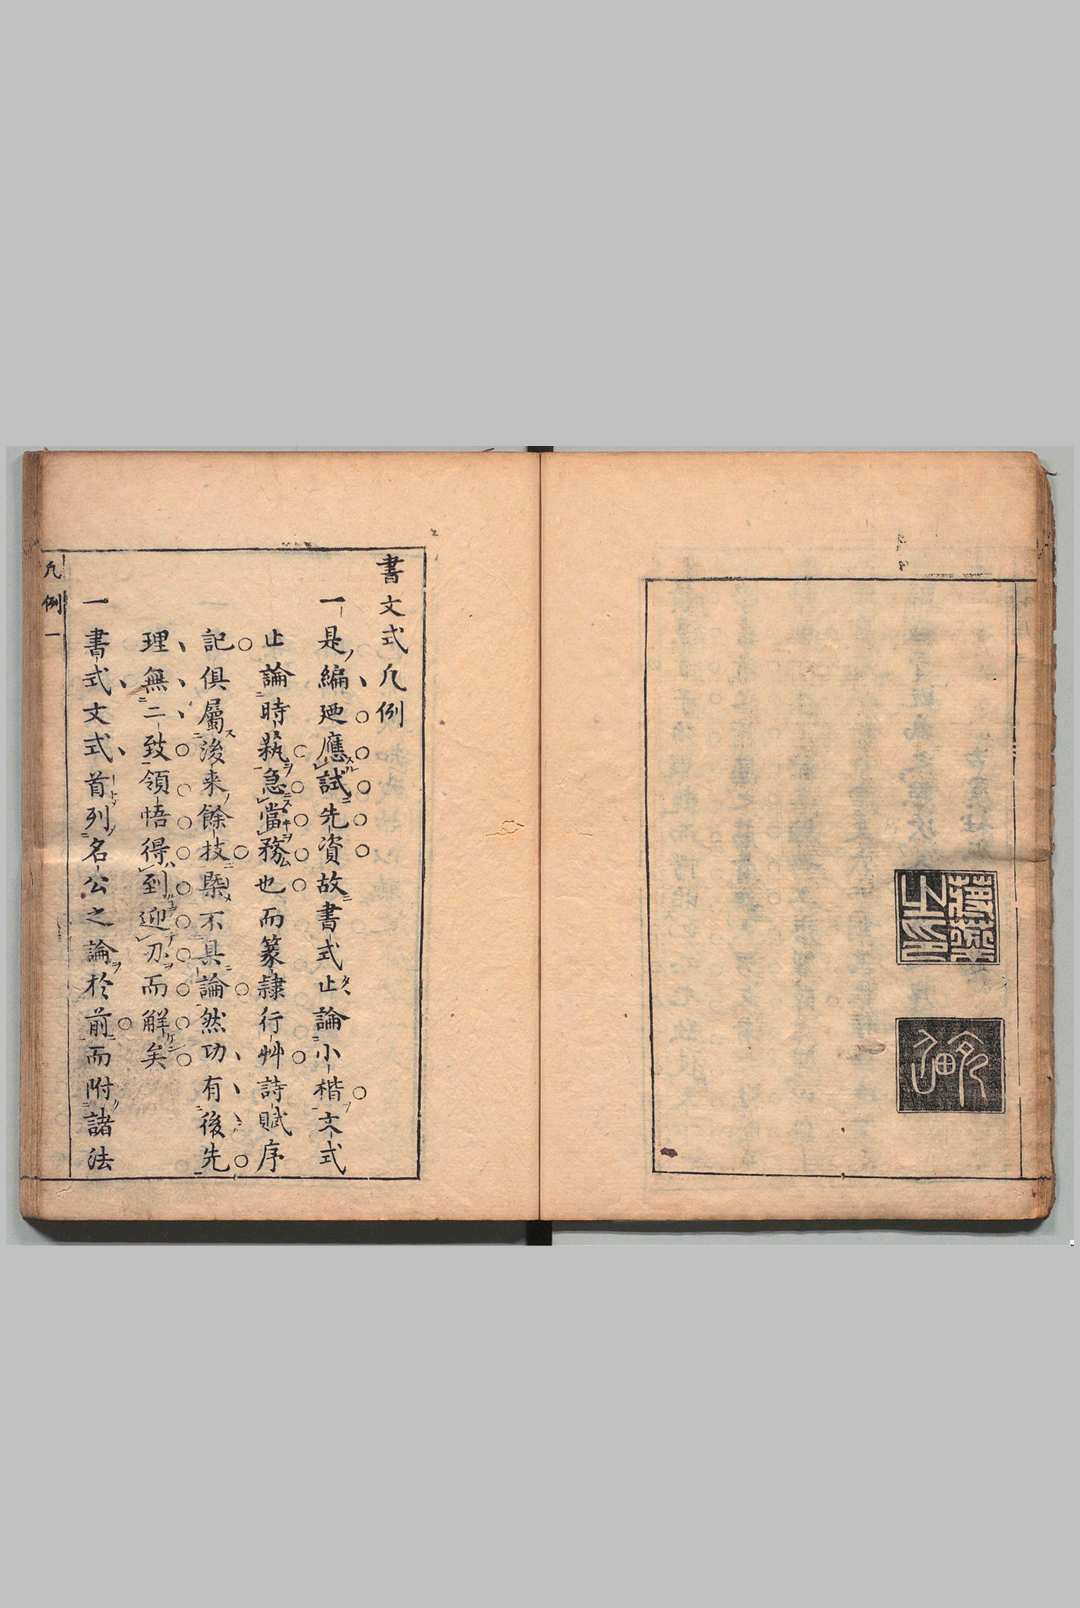 之印
書文式凡例
一是編廼應試先資故書式止論小楷文式
止論時埶急當務也而篆隷行艸詩賦序
記俱屬後来餘技槩不具論然功有後先
理無二致領悟得到迎刃而觧矣
一書式文式首列名公之論於前而附諸法
凡例 一